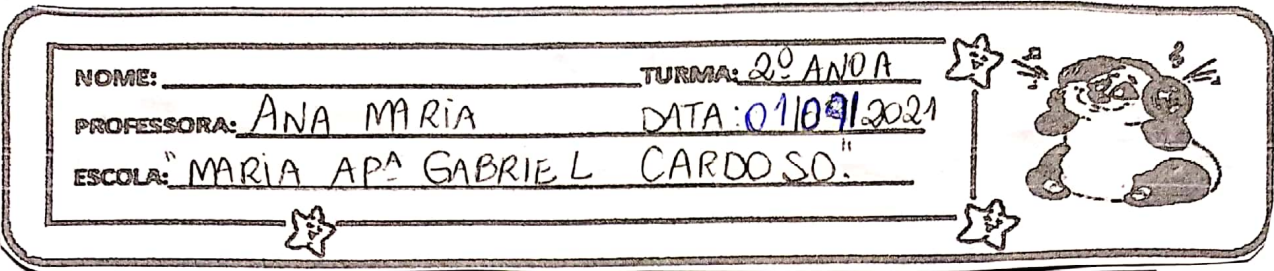 NOME: TURMA: 2º ANO A
PROFESSORA: ANA MARIA DATA: 01/09/2021
ESCOLA: "MARIA APª GABRIEL CARDOSO."